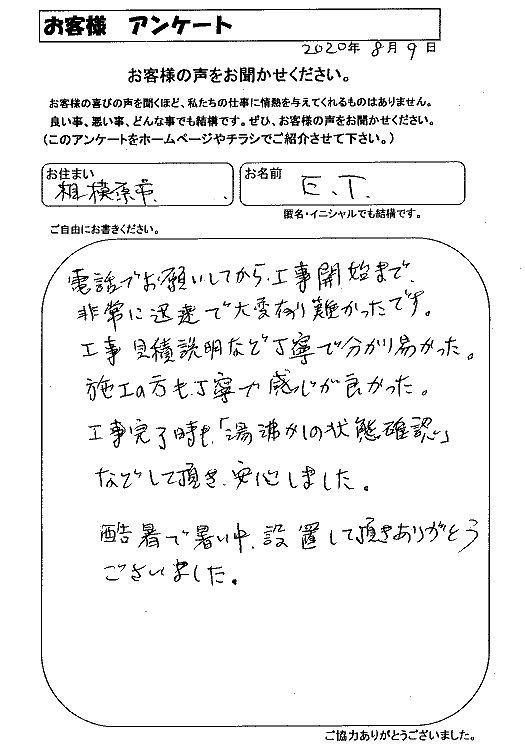 お客様 アンケート
2020年 8月 9日
お客様の声をお聞かせください。
お客様の喜びの声を聞くほど、私たちの仕事に情熱を与えてくれるものはありません。
良い事、悪い事、どんな事でも結構です。ぜひ、お客様の声をお聞かせください。
(このアンケートをホームページやチラシでご紹介させて下さい。)
お住まい
相模原市
お名前
E.T.
匿名・イニシャルでも結構です。
ご自由にお書きください。
電話でお願いしてから、工事開始まで、
非常に迅速で大変有り難かったです。
工事見積説明など丁寧で分かり易かった。
施工の方も丁寧で感じが良かった。
工事完了時も「湯沸かしの状態確認」
などして頂き、安心しました。
酷暑で暑い中、設置して頂きありがとう
ございました。
ご協力ありがとうございました。